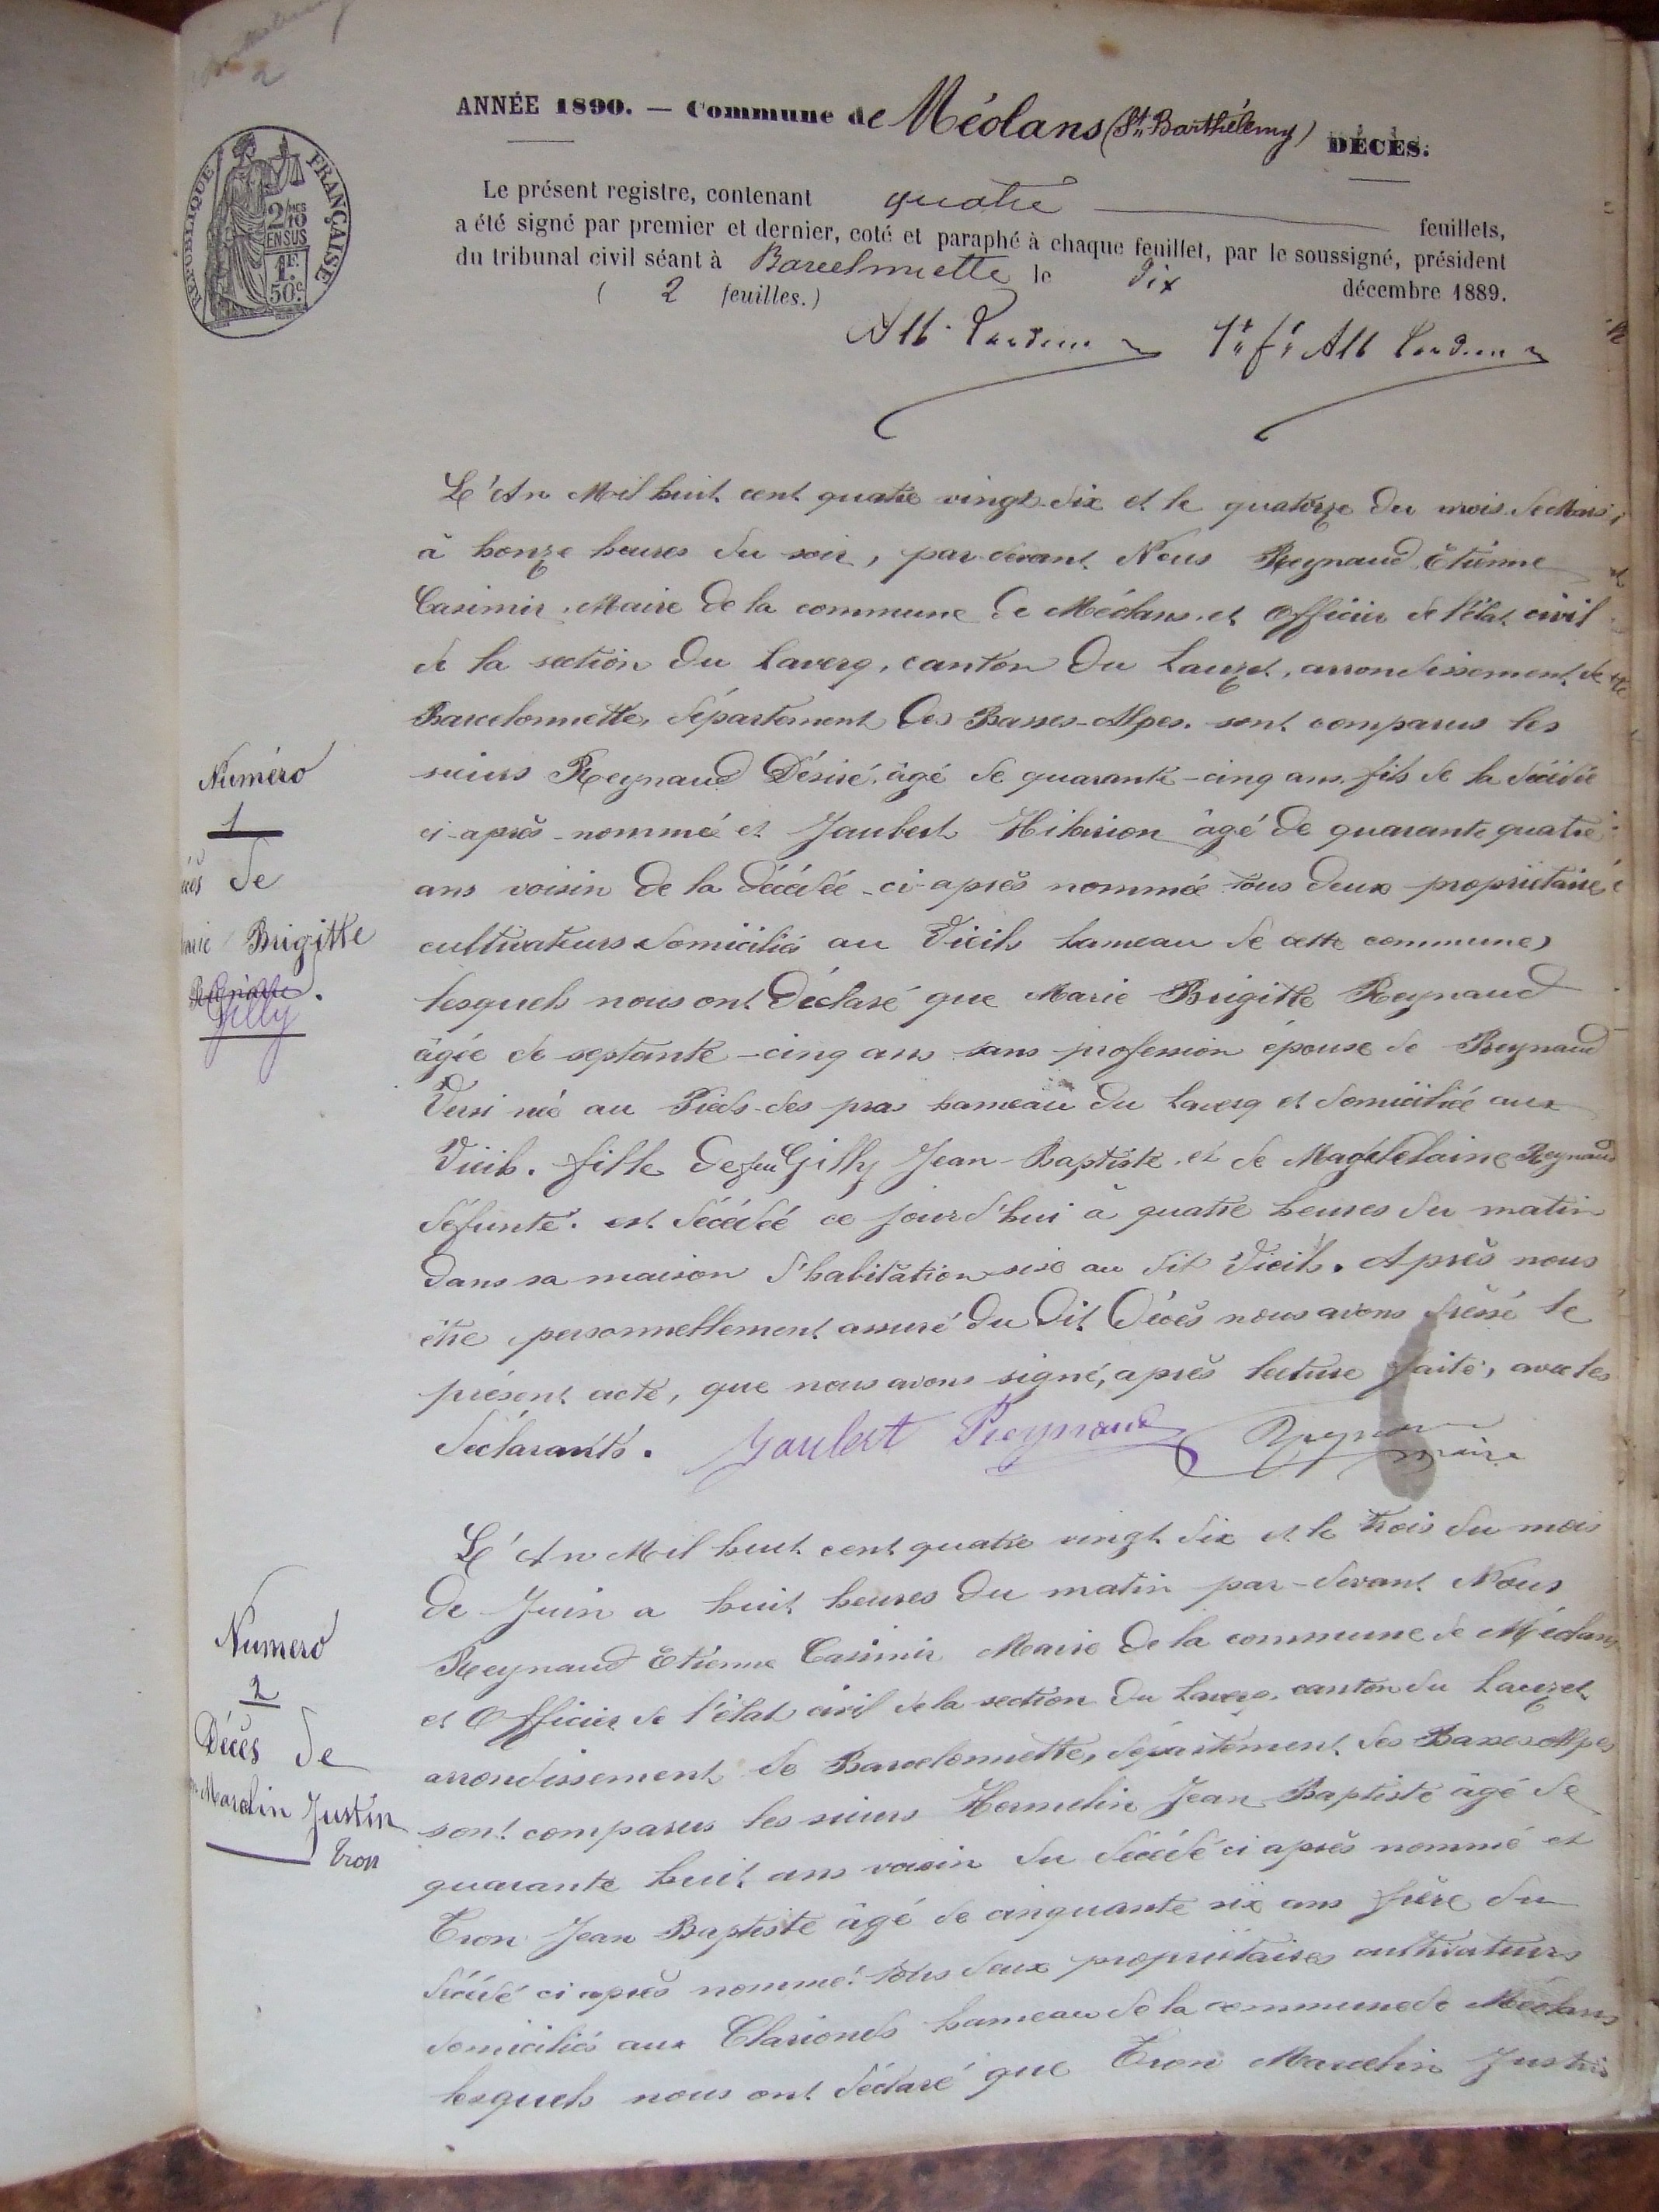 2
ANNÉE 1890. — Commune de Méolans (St Barthélemy) DÉCÈS.
RÉPUBLIQUE FRANÇAISE
2/10 MES
EN SUS
1F.
50c
Le présent registre, contenant quatre feuillets,
a été signé par premier et dernier, coté et paraphé à chaque feuillet, par le soussigné, président
du tribunal civil séant à Barcelonnette le dix décembre 1889.
( 2 feuilles.)
L'An Mil huit cent quatre vingt-dix et le quatorze du mois de Mars
à honze heures du soir, par-devant Nous Reynaud Etienne
Casimir, Maire de la commune de Méolans et Officier de l'état civil
de la section du Laverq, canton du Lauzet, arrondissement de
Barcelonnette, département des Basses-Alpes. sont comparus les
Numéro
1
sieurs Reynaud Désiré, âgé de quarante-cinq ans, fils de la décédée
ci-après-nommée et Jaubert Hilarion âgé de quarante quatre
de
ans voisin de la décédée ci-après nommée tous deux propriétaires
Brigitte
cultivateurs domiciliés au Vieils hameau de cette commune,
Gilly
lesquels nous ont déclaré que Marie Brigitte Reynaud
âgée de septante-cinq ans sans profession épouse de Reynaud
née au Pieds-des-pras hameau du Laverq et domiciliée aux
Vieils. fille de feu Gilly Jean-Baptiste et de Magdelaine Reynaud
défunte. est décédée ce jourd'hui à quatre heures du matin
dans sa maison d'habitation sise au dit Vieils. Après nous
être personnellement assuré du dit Décès nous avons dressé le
présent acte, que nous avons signé, après lecture faite, avec les
déclarants. Jaubert Reynaud Reynaud maire
L'An Mil huit cent quatre vingt dix et le trois du mois
de Juin a huit heures du matin par-devant Nous
Numero
2
Reynaud Etienne Casimir Maire de la commune de Méolans
et Officier de l'état civil de la section du Laverq, canton du Lauzet
Décès de
arrondissement de Barcelonnette, département des Basses Alpes
Marcelin Justin
Tron
sont comparus les sieurs Hermelin Jean Baptiste âgé de
quarante huit ans voisin du décédé ci après nommé et
Tron Jean Baptiste âgé de cinquante six ans frère du
décédé ci après nommé. tous deux propriétaires cultivateurs
domiciliés aux Clarionds hameau de la commune de Méolans
lesquels nous ont déclaré que Tron Marcelin Justin